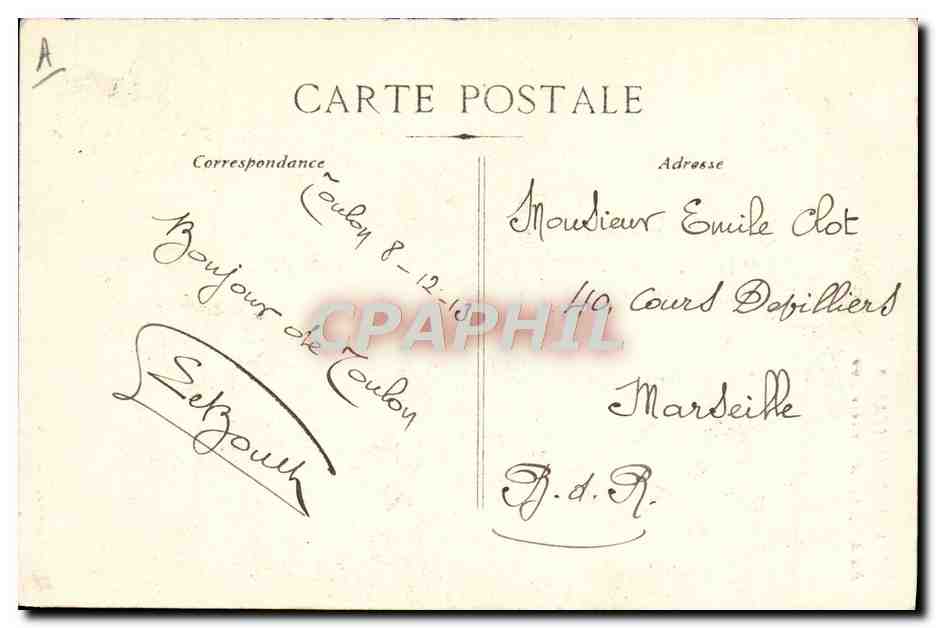 A
CARTE POSTALE
Correspondance
Adresse
Toulon 8-12-13
Bonjour de Toulon
Monsieur Emile Clot
40, Cours Devilliers
Marseille
B. d. R.
CPAPHIL